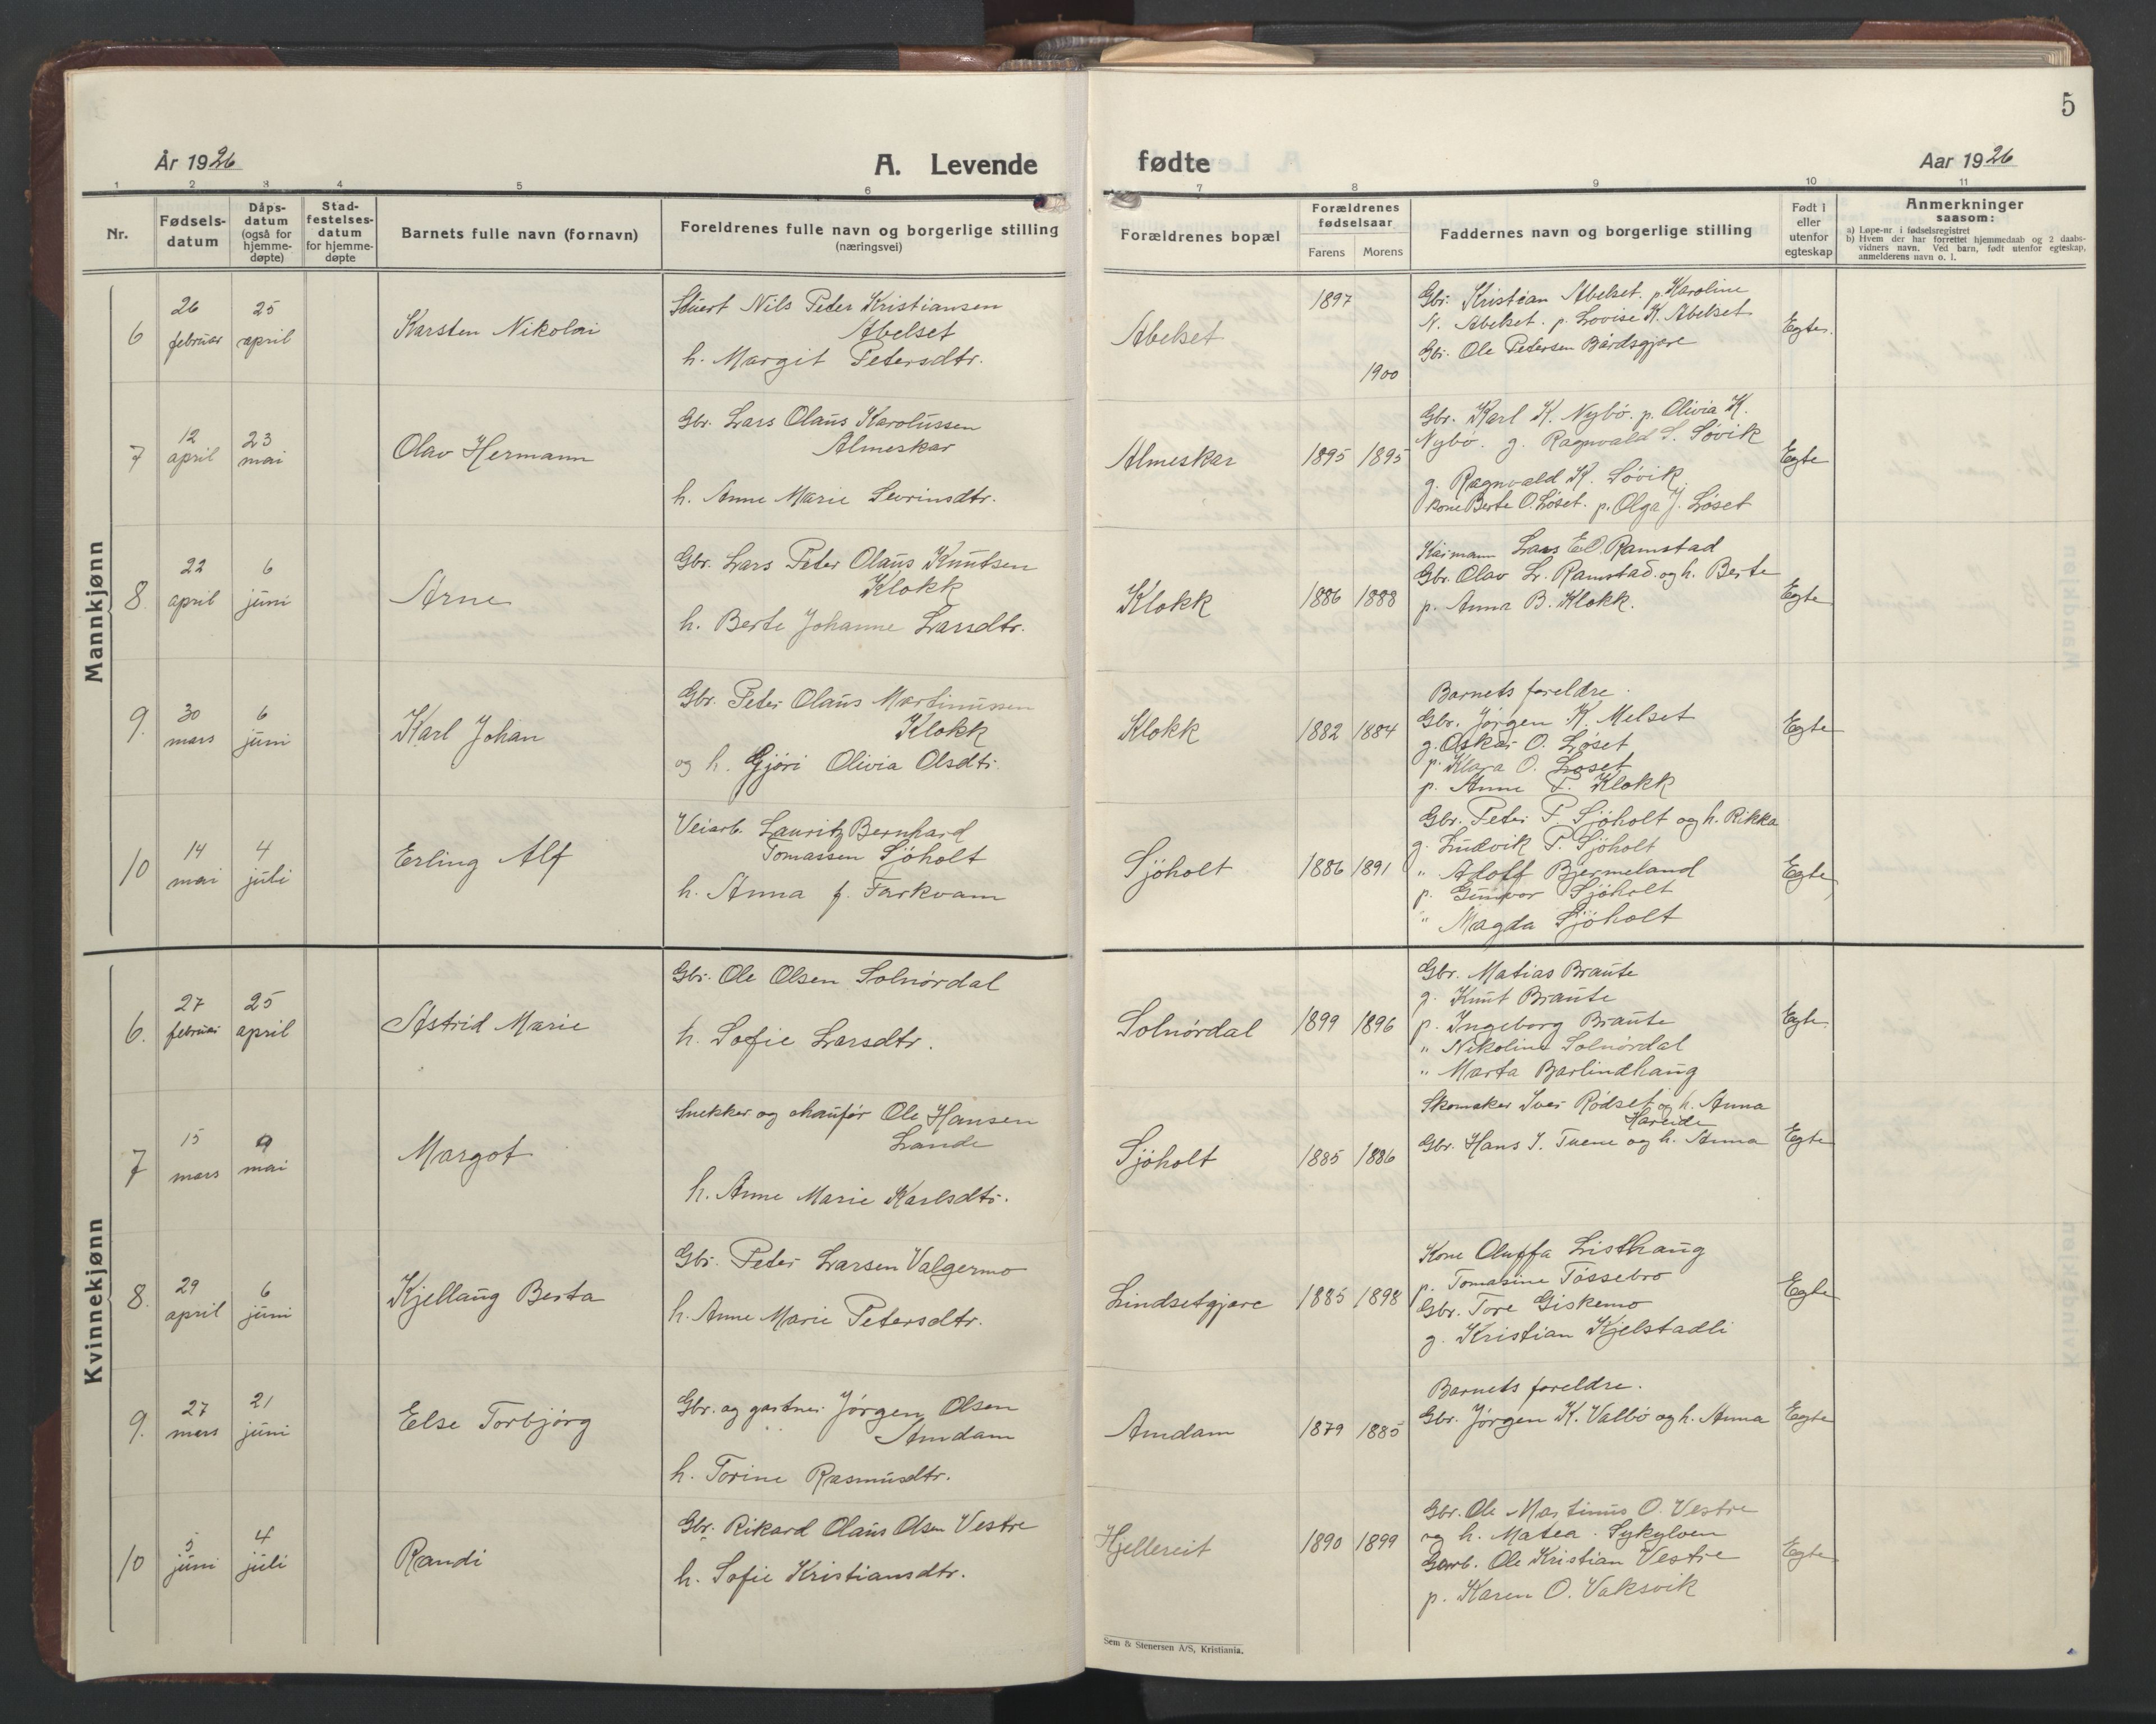 5
År 1926
A. Levende
fødte
Aar 1926
1 2 3 4 5 6 7 8 9 10 11
Nr.
Fødsels-
datum
Dåps-
datum
(også for
hjemme-
døpte)
Stad-
festelses-
datum
for hjemme-
døpte
Barnets fulle navn (fornavn)
Foreldrenes fulle navn og borgerlige stilling
(næringsvei)
Forældrenes bopæl
Forældrenes
fødselsaar
Farens Morens
Faddernes navn og borgerlige stilling
Født i
eller
utenfor
egteskap
Anmerkninger
saasom:
a) Løpe-nr. i fødselsregistret
b) Hvem der har forrettet hjemmedaab og 2 daabs-
vidners navn. Ved barn, født utenfor egteskap,
anmelderens navn o. l.
Mannkjønn
6
26
februar
25
april
Karsten Nikolai
Stuert Nils Peter Kristiansen
Abelset
h. Margit Petersdtr.
Abelset
1897
1900
Gbr. Kristian Abelset. p. Karoline
N. Abelset. p. Lovise K. Abelset
Gbr. Ole Petersen Bårdsgjære
Egte.
7
12
april
23
mai
Olav Hermann
Gbr. Lars Olaus Karolussen
Almeskar
h. Anne Marie Sevrinsdtr.
Almeskar
1895 1895
Gbr. Karl K. Nybø. p. Olivia K.
Nybø. g. Ragnvald S. Søvik
g. Ragnvald K. Søvik.
Kone Berte O. Løset. p. Olga J. Løset
Egte
8
22
april
6
juni
Arne
Gbr. Lars Peter Olaus Knutsen
Klokk
h. Berte Johanne Larsdtr.
Klokk
1886 1888
Lars Ed. Ramstad
Gbr. Olav L. Ramstad og h. Berte
p. Anna B. Klokk.
Egte
9.
30
mars
6
juni
Karl Johan
Gbr. Peter Olaus Martinussen
Klokk
og h. Gjøri Olivia Olsdtr.
Klokk
1882 1884
Barnets foreldre.
Gbr. Jørgen K. Melset
g. Oskar O. Løset
p. Klara O. Løset
p. Anne P. Klokk
Egte
10
14
mai
4
juli
Erling Alf
Veiarb. Lauritz Bernhard
Tomassen Sjøholt
h. Anna f. Farkvam
Sjøholt
1886 1891
Gbr. Peter P. Sjøholt og h. Rikka
g. Ludvik P. Sjøholt
" Adolf Bjermeland
p. Gunvor Sjøholt
" Magda Sjøholt
Egte
Kvinnekjønn
6.
27
februar
25
april
Astrid Marie
Gbr. Ole Olsen Solnørdal
h. Sofie Larsdtr.
Solnørdal
1899 1896
Gbr. Matias Braute
g. Knut Braute
p. Ingeborg Braute
" Nikoline Solnørdal
" Marta Barlindhaug
Egte
7
15
mars
9
mai
Margot
Snekker og chaufør Ole Hansen
Lande
h. Anne Marie Karlsdtr.
Sjøholt
1885 1886
Skomaker Iver Rødset og h. Anna
Hareide
Gbr. Hans I. Tuene og h. Anna
Egte
8.
29
april
6
juni
Kjellaug Berta
Gbr. Peter Larsen Valgermo
h. Anne Marie Petersdtr.
Lindsetgjære
1885 1898
Kone Oluffa Listhaug
p. Tomasine Tøssebro
Gbr. Tore Giskemo
g. Kristian Kjelstadli
Egte
9.
27
mars
21
juni
Else Torbjørg
Gbr. og gartner Jørgen Olsen
Amdam
h. Torine Rasmusdtr.
Amdam
1879 1885
Barnets foreldre.
Gbr. Jørgen K. Valbø og h. Anna
Egte
10
5
juni
4
juli
Randi
Gbr. Rikard Olaus Olsen Vestre
h. Sofie Kristiansdtr.
Hjellereit
1890 1899
Gbr. Ole Martinus O. Vestre
og h. Matea. Sykylven
Ole Kristian Vestre
p. Karen O. Vaksvik
Egte
Sem & Stenersen A/S, Kristiania.